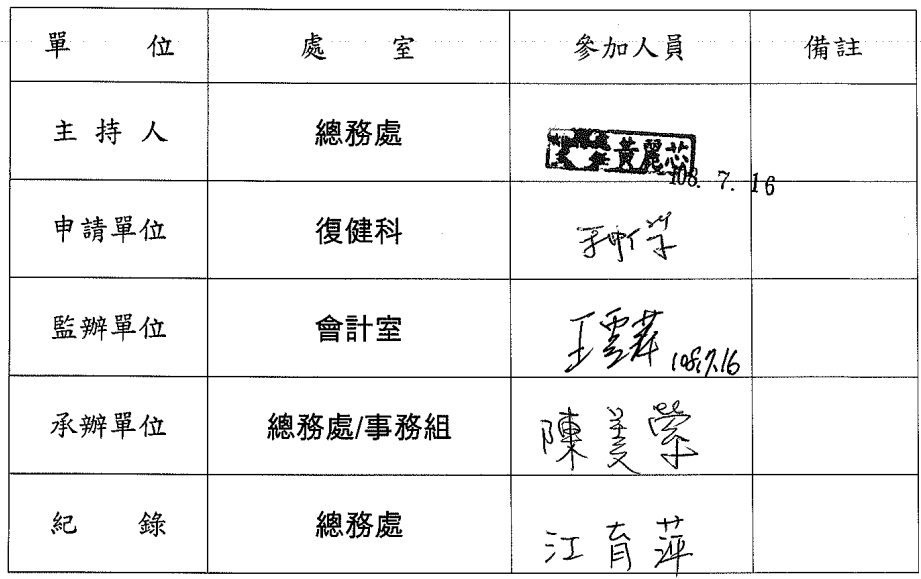 單 位 處 室 參加人員 備註
主 持 人 總務處 黃麗芯
108. 7. 16
申請單位 復健科
監辦單位 會計室 王雲 108.7.16
承辦單位 總務處/事務組 陳美縈
紀 錄 總務處 江育萍